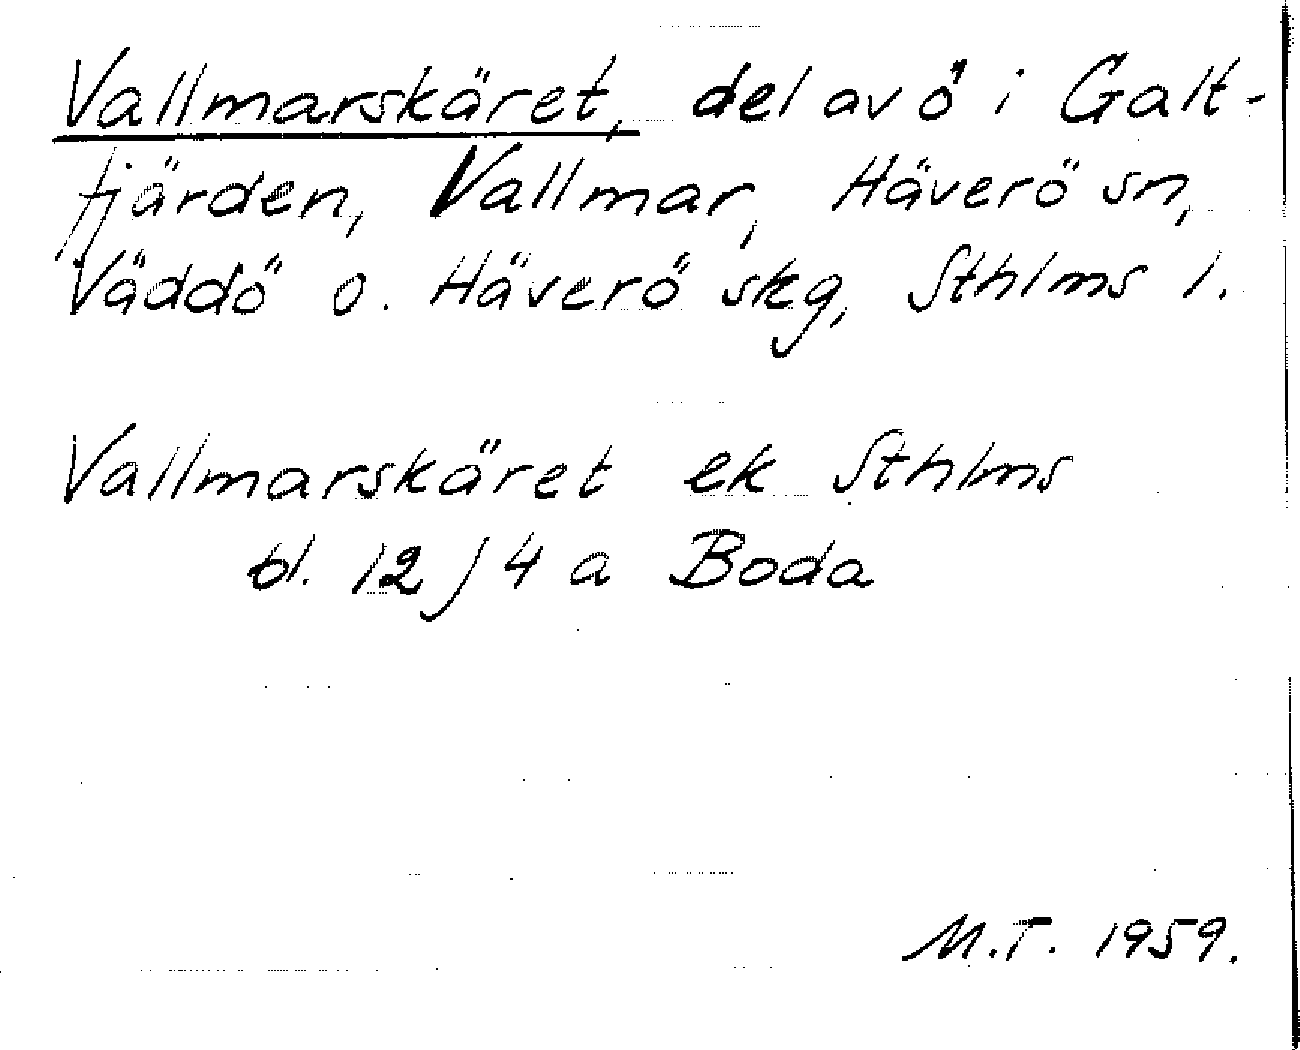 Vallmarskäret, del av ö i Galt-
fjärden, Vallmar, Häverö sn,
Väddö o. Häverö skg, Sthlms l.
Vallmarskäret ek Sthlms
bl. 12 J 4 a Boda
M.T. 1959.